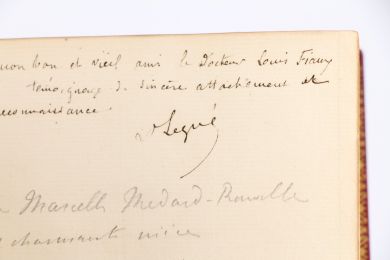 mon bon et vieil ami le Docteur Louis
témoignage de sincère attachement et
reconnaissance.
Dr Segué
Marcelle Médard-
charmante nièce